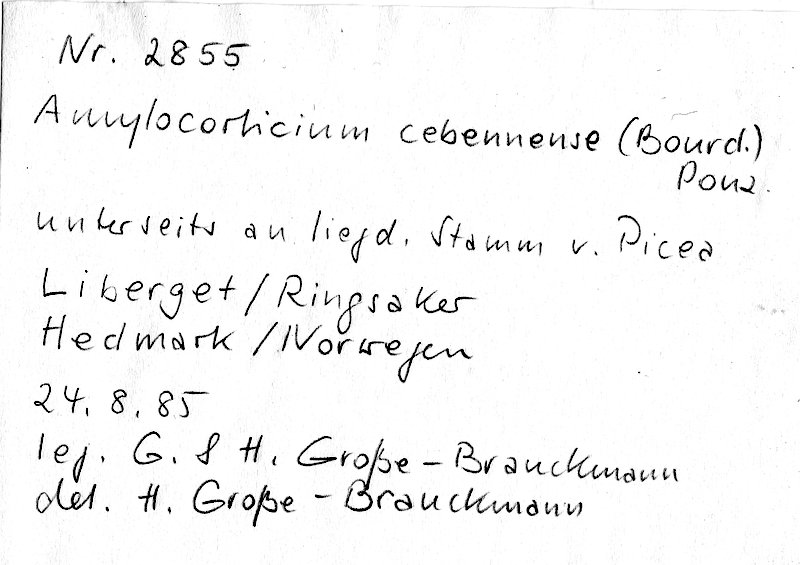 Nr. 2855
Amylocorticium cebennense (Bourd.)
Pouz.
unterseits an liegd. Stamm v. Picea
Liberget / Ringsaker
Hedmark / Norwegen
24. 8. 85
leg. G. & H. Große-Brauckmann
det. H. Große-Brauckmann